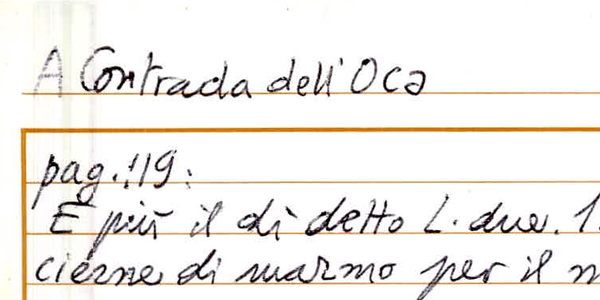 A Contrada dell'Oca
pag. 119:
E più il dì detto L. due. 1.
cierne di marmo per il m